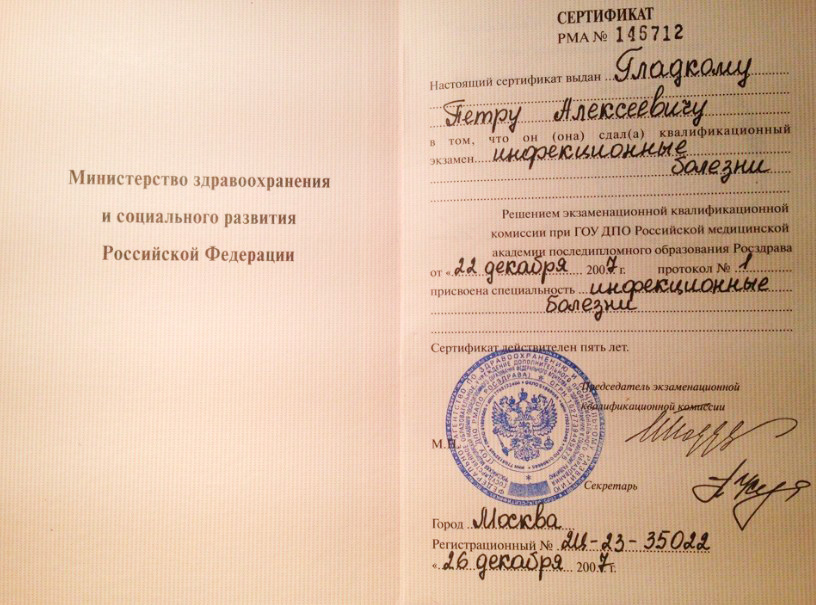 Министерство здравоохранения
и социального развития
Российской Федерации
СЕРТИФИКАТ
РМА № 146712
Настоящий сертификат выдан Гладкому
Петру Алексеевичу
в том, что он (она) сдал(а) квалификационный
экзамен инфекционные
болезни
Решением экзаменационной квалификационной
комиссии при ГОУ ДПО Российской медицинской
академии последипломного образования Росздрава
от «22 декабря 2007 г. протокол № 1
присвоена специальность инфекционные
болезни
Сертификат действителен пять лет.
Председатель экзаменационной
квалификационной комиссии
М.П.
Секретарь
Город Москва
Регистрационный № 2Ц-23-35022
«26 декабря 2007 г.